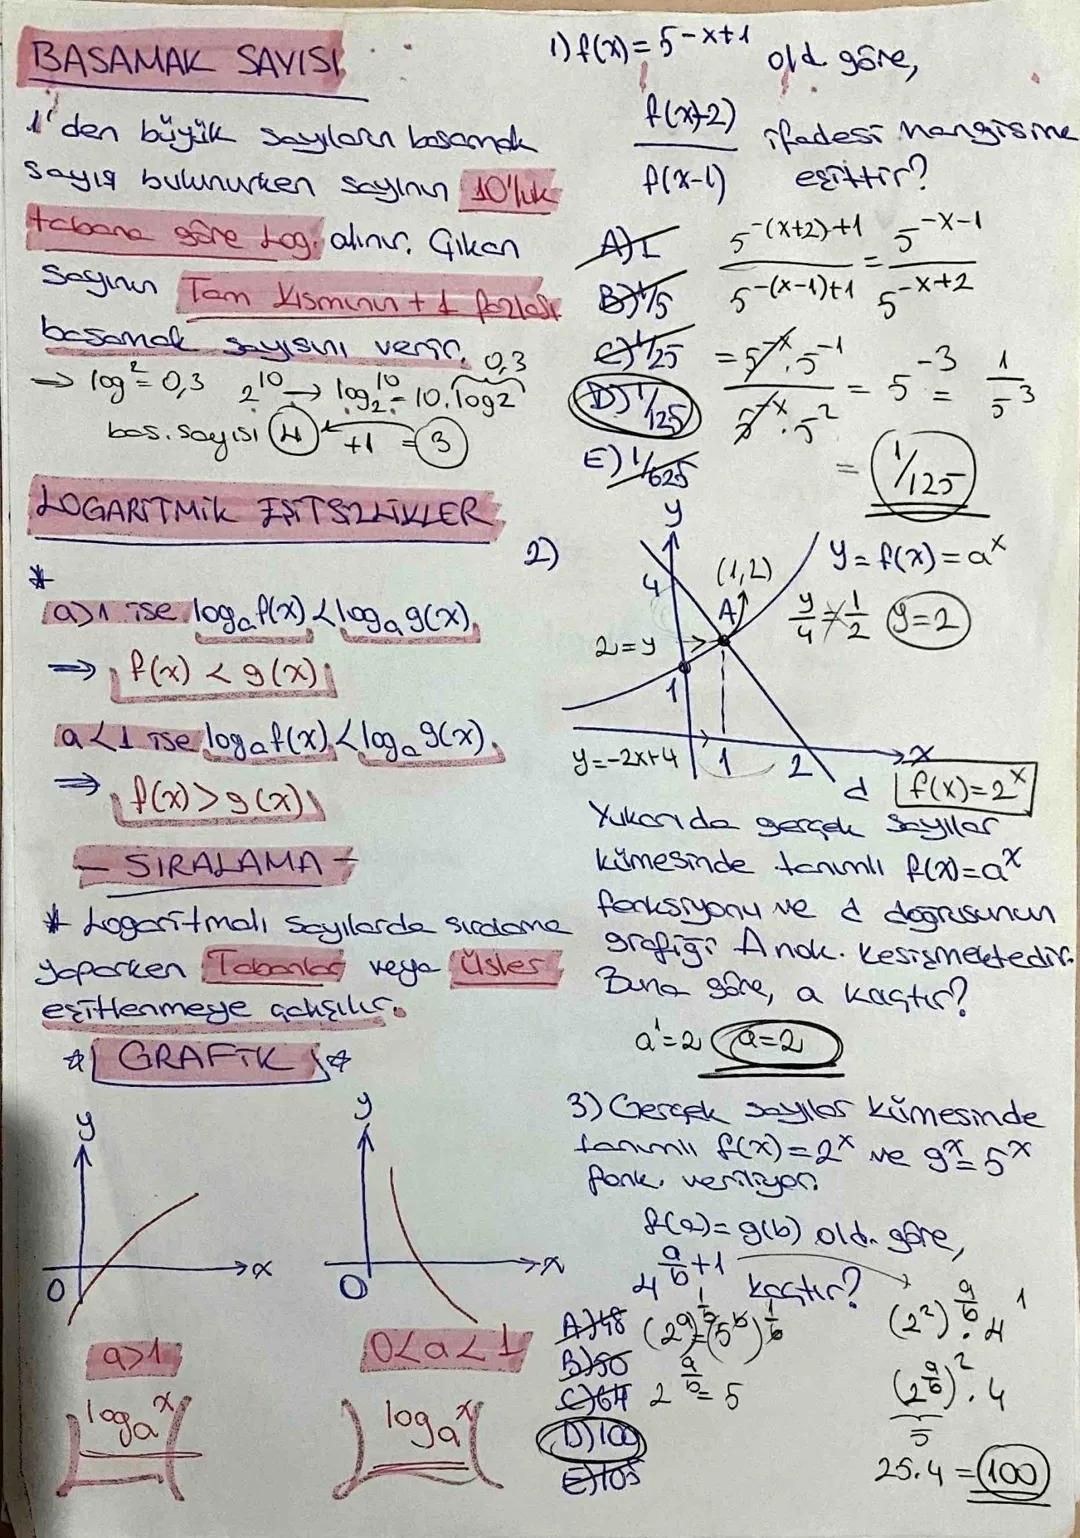 BASAMAK SAYISI
1'den büyük sayıların basamak
sayısı bulunurken sayının 10'luk
tabana göre Log. alınır. Çıkan
sayının Tam Kısmının +1 fazlası
basamak sayısını verir.
⇒ log2 = 0,3 2^10 → log2^10 = 10.log2 0,3
bas. sayısı 4 ← +1 = 3
LOGARİTMİK EŞİTSİZLİKLER
*
a>1 ise logₐf(x) < logₐg(x)
⇒ f(x) < g(x)
a<1 ise logₐf(x) < logₐg(x)
⇒ f(x) > g(x)
- SIRALAMA -
* Logaritmalı sayılarda sıralama
yaparken Tabanlar veya Üsler
eşitlenmeye çalışılır.
GRAFİK
y
x
O
a>1
logₐx
y
x
O
0<a<1
logₐx
1) f(x) = 5^-x+1 old. göre,
f(x+2)/f(x-1) ifadesi hangisine
eşittir?
A) 1
B) 1/5
C) 1/25
D) 1/125
E) 1/625
5^-(x+2)+1 / 5^-(x-1)+1 = 5^-x-1 / 5^-x+2
= 5^-x.5^-1 / 5^-x.5^2 = 5^-3 = 1/5^3
= 1/125
2)
y
4
(1,2)
A
2=y
1
y=-2x+4
1
2
x
d
y = f(x) = a^x
y/4 = 1/2 y=2
f(x)=2^x
Yukarıda gerçek sayılar
kümesinde tanımlı f(x)=a^x
fonksiyonu ve d doğrusunun
grafiği A nok. kesişmektedir.
Buna göre, a kaçtır?
a^1=2 a=2
3) Gerçek sayılar kümesinde
tanımlı f(x)=2^x ve g^x=5^x
fonk. veriliyor.
f(a)=g(b) old. göre,
4^a/b+1 kaçtır?
A) 48
B) 50
C) 64
D) 100
E) 105
(2^a)^1/b=(5^b)^1/b
2^a/b = 5
(2^2)^a/b . 4^1
(2^a/b)^2 . 4
5
25.4 = 100